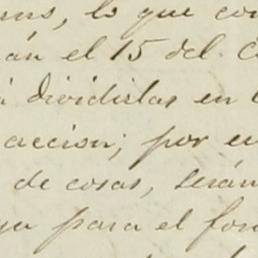 lo que con
án el 15 del C
dividirlas en
accion; por e
de cosas, serán
ya para el fon